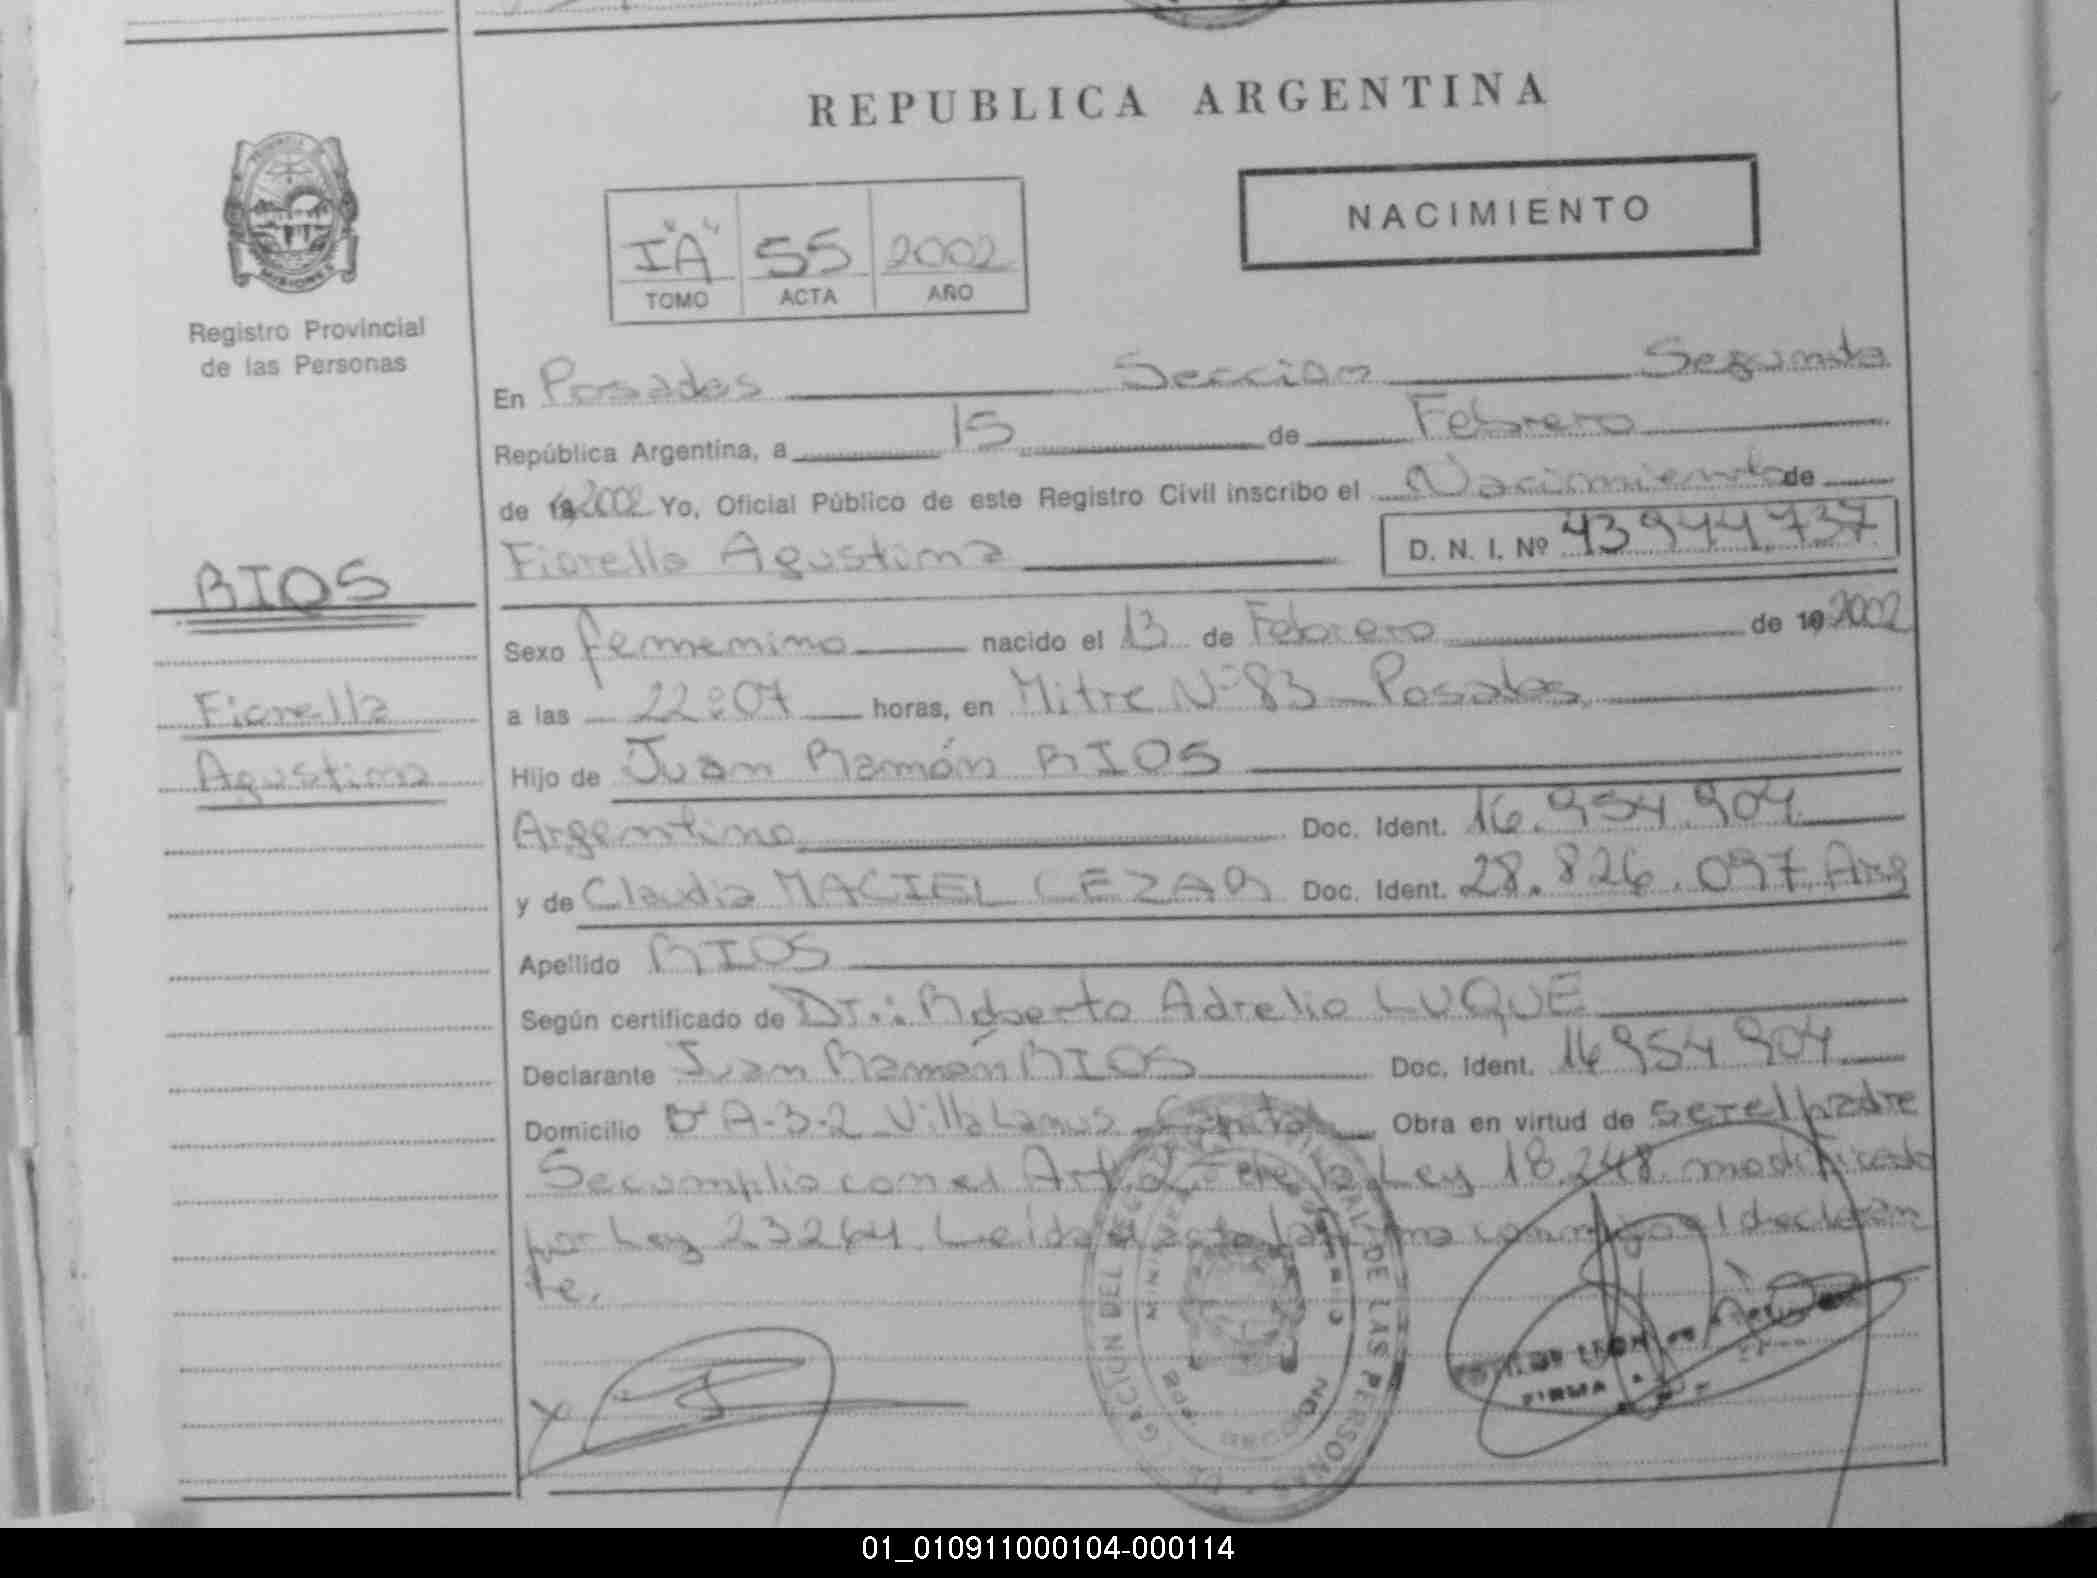 REPUBLICA ARGENTINA
NACIMIENTO
I "A" 55 2002
TOMO ACTA AÑO
Registro Provincial
de las Personas
En Posadas Seccion Segunda
República Argentina, a 15 de Febrero
de 19 2002 Yo, Oficial Público de este Registro Civil inscribo el Nacimiento de
Fiorella Agustina D. N. I. Nº 43944.737
RIOS
Sexo femenino nacido el 13 de Febrero de 19 2002
Fiorella
a las 22:07 horas, en Mitre Nº 83 Posadas
Agustina
Hijo de Juan Ramón RIOS
Argentino Doc. Ident. 16.954.904
y de Claudia MACIEL CEZAR Doc. Ident. 28.826.097 Arg
Apellido RIOS
Según certificado de Dr.: Roberto Adrelio LUQUE
Declarante Juan Ramón RIOS Doc. Ident. 16954904
Domicilio A-3-2 Villa Lanus Capital Obra en virtud de ser el padre
Se cumplio con el Art. de la Ley 18.248 modificado
por Ley 23264. Leida el acta la firma conmigo el declaran
te.
DE LAS PERSONAS
FIRMA
01_010911000104-000114